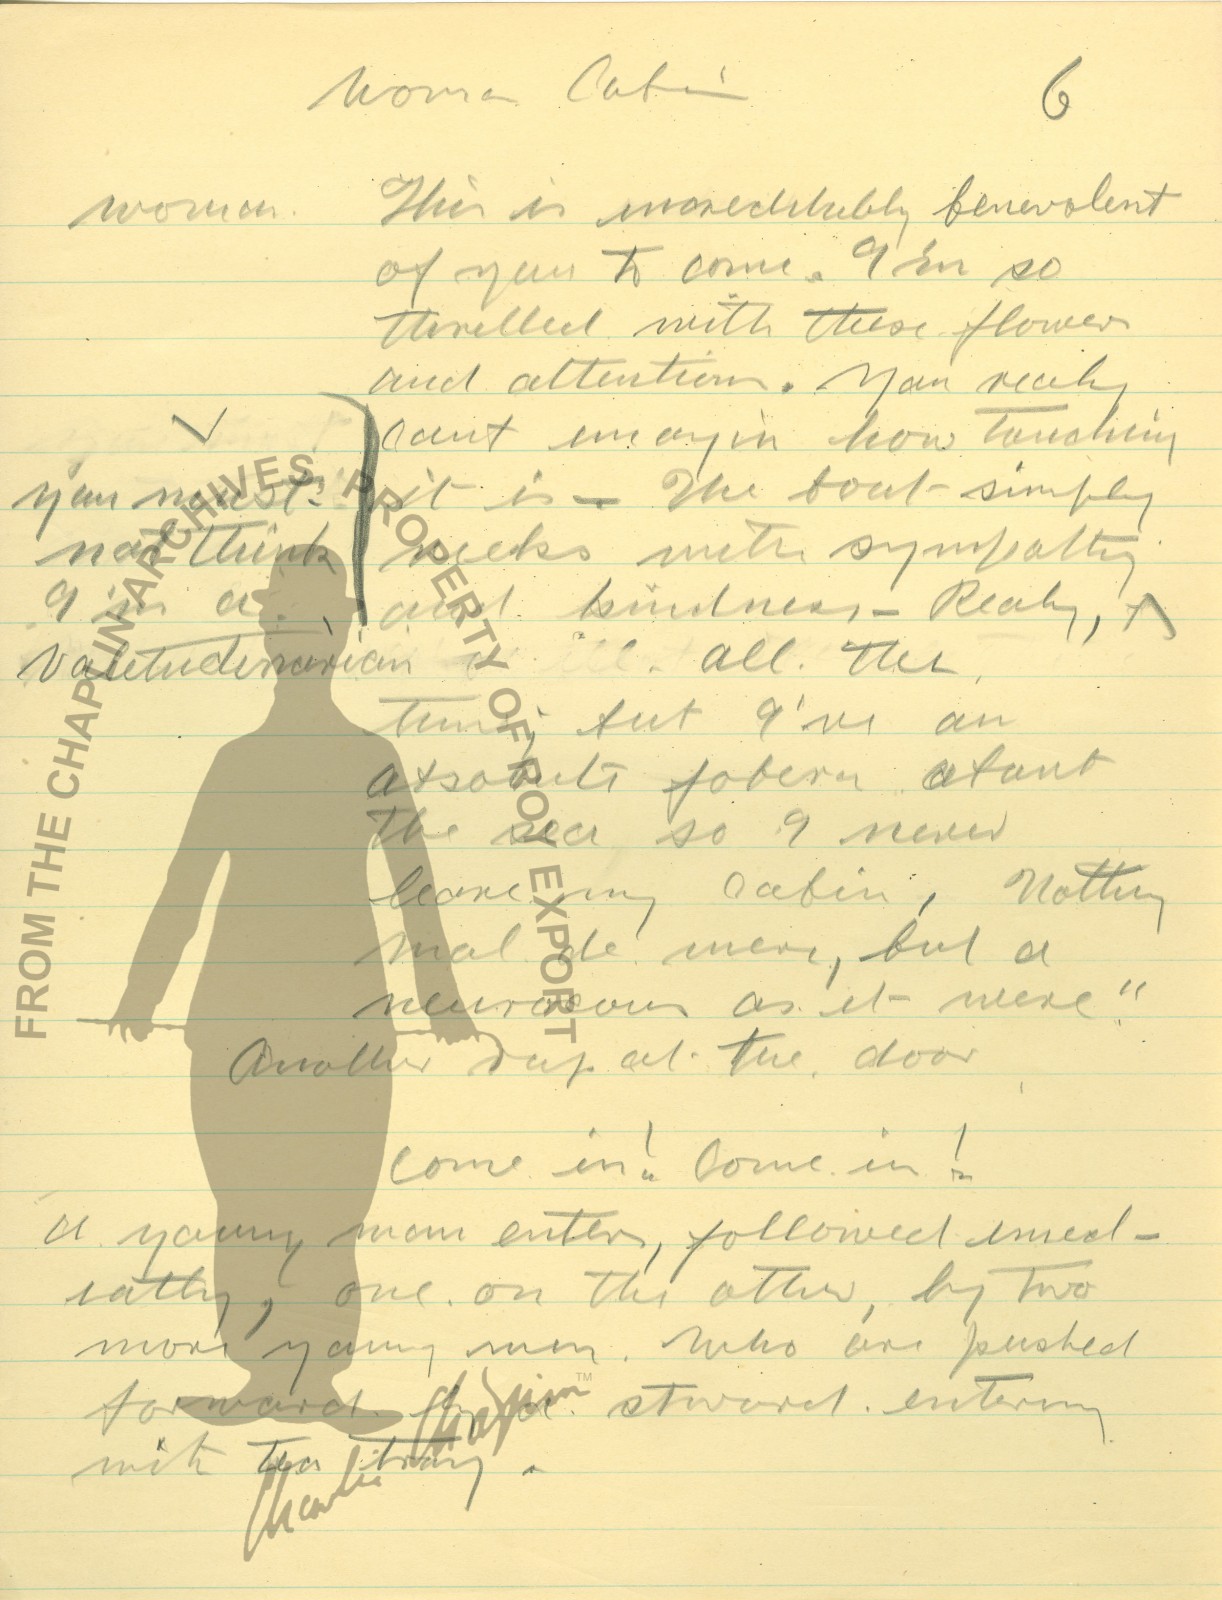 Woman Cabin
6
woman. This is increddibably benevolent
of you to come. I'm so
thrilled with these flowers
and attentions. You realy
cant imagin how touching
it is - The boat simply
reeks with sympathy
and kindness - Realy, ^
✓
you must
not think
I'm a
Valetudenarian
all. the
time, but I've an
absolute fobera about
the sea so I never
leave my cabin, Nothing
mal de mere, but a
as it were"
Another rap at the door
Come in! Come in!
a young man enters, followed imed-
iatly, one on the other, by two
more young men. who are pushed
forward by a stward. entering
with tea tray.
FROM THE CHAPLIN ARCHIVES. PROPERTY OF ROY EXPORT
Charlie Chaplin™